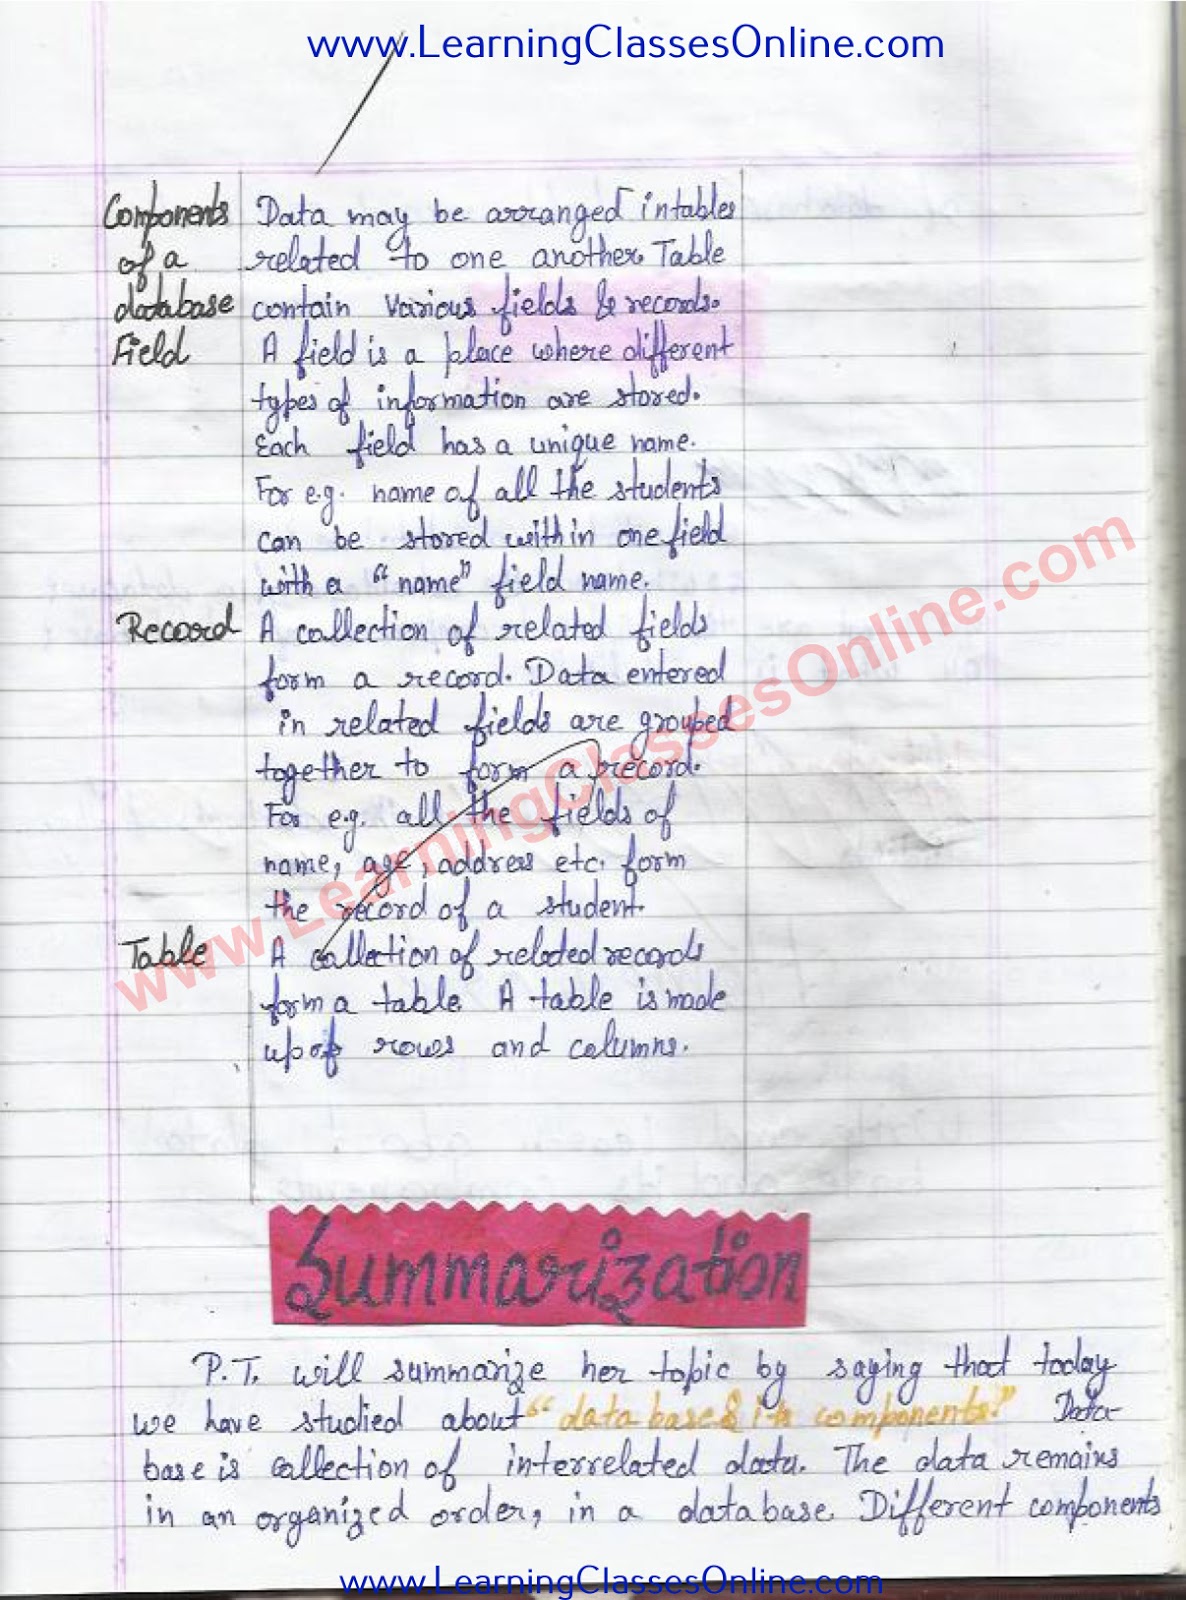 www.LearningClassesOnline.com
Components Data may be arranged in tables
of a related to one another. Table
database contain various fields & records.
Field A field is a place where different
types of information are stored.
Each field has a unique name.
For e.g. name of all the students
can be stored within one field
with a "name" field name.
Record A collection of related fields
form a record. Data entered
in related fields are grouped
together to form a record.
For e.g. all the fields of
name, age, address etc. form
the record of a student.
Table A collection of related records
form a table. A table is made
up of rows and columns.
www.LearningClassesOnline.com
Summarization
P.T. will summarize her topic by saying that today
we have studied about "data base & its components." Data
base is collection of interrelated data. The data remains
in an organized order, in a database. Different components
www.LearningClassesOnline.com